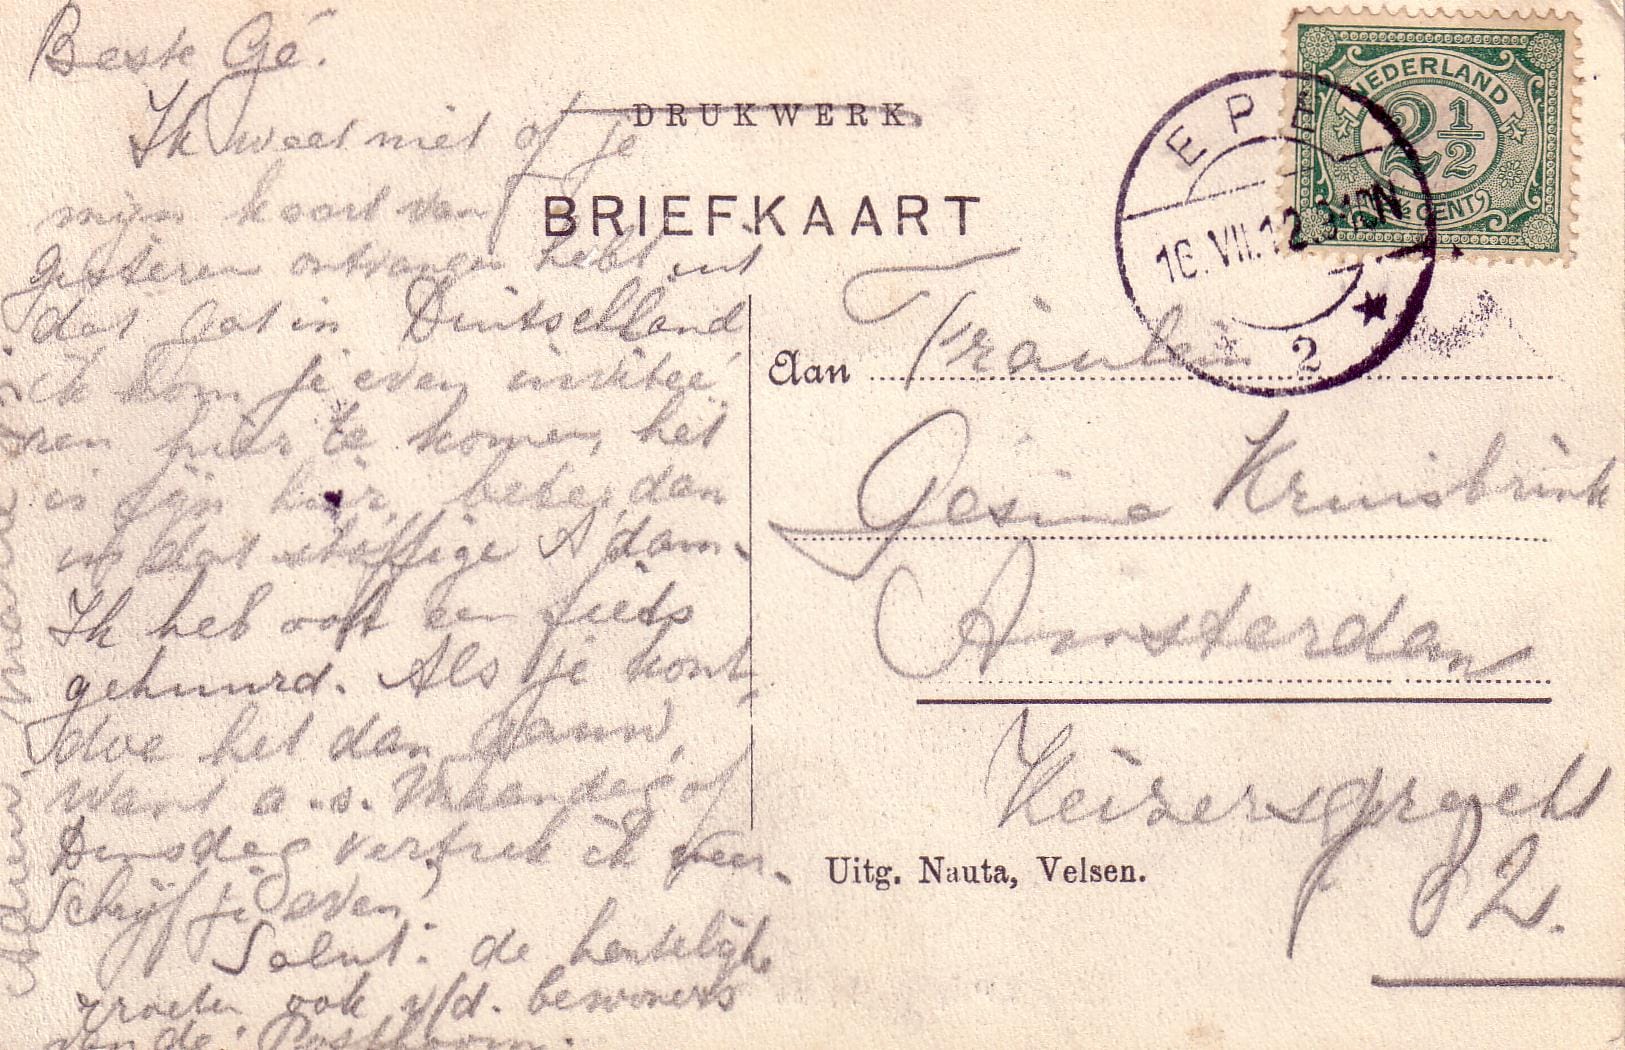 Beste Gé.
Ik weet niet of je
mijn kaart van
gisteren ontvangen hebt uit
dat gat in Duitschland
ik kom je even invitee
ren hier te komen, het
is fijn hier, beter dan
in dat stoffige A'dam.
Ik heb ook een fiets
gehuurd. Als je komt,
doe het dan gauw,
want a.s. Maandag of
Dinsdag vertrek ik weer.
Schrijf je even,
Saluut: de hartelijke
groeten ook v/d. bewoners
van de Postboom.
DRUKWERK.
BRIEFKAART
NEDERLAND
2½
2½ CENT
EPE
16.VII.12.3-4N
2
Aan Fräulein
Gesine Kruisbrink
Amsterdam
Keizersgracht
82.
Uitg. Nauta, Velsen.